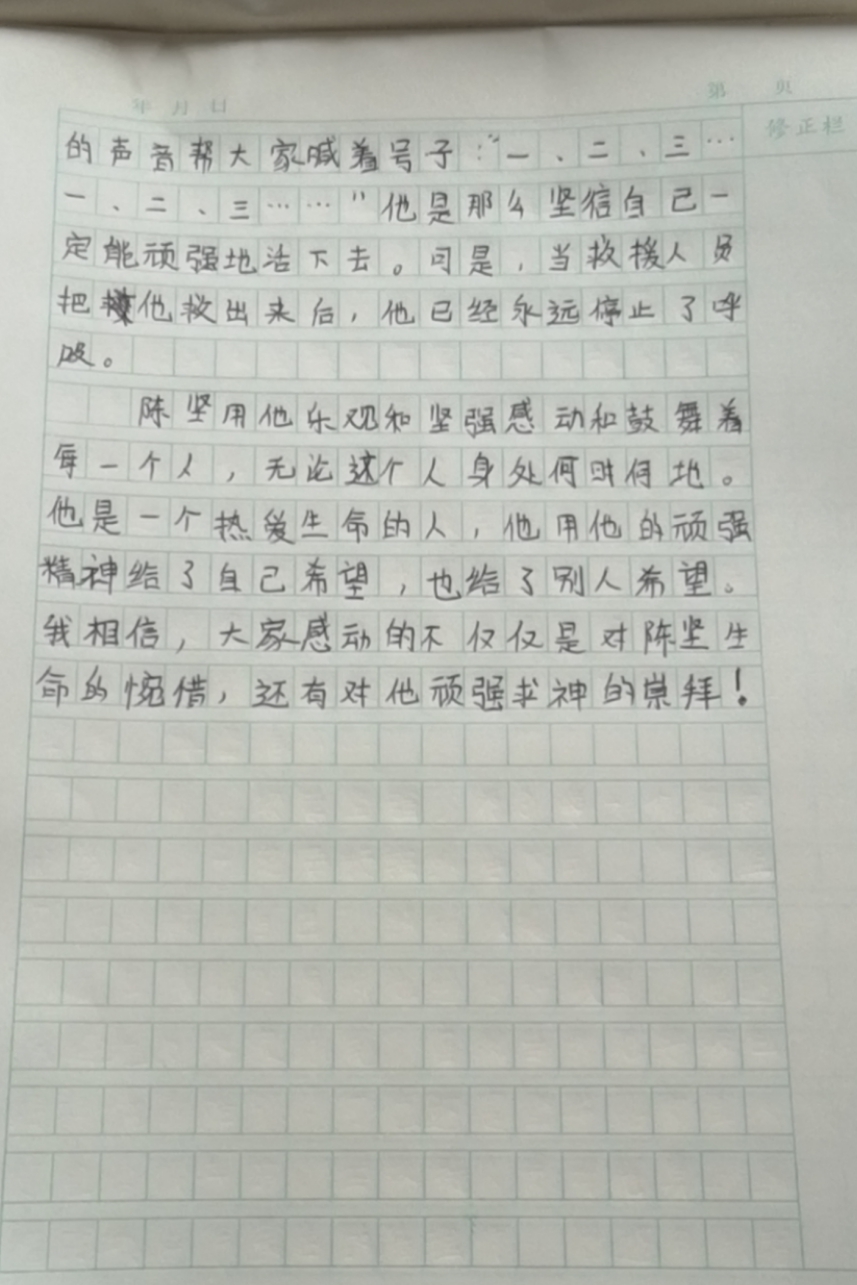 年 月 日
第 页
修正栏
的声音帮大家喊着号子:“一、二、三…
一、二、三……”他是那么坚信自己一
定能顽强地活下去。可是,当救援人员
把他救出来后,他已经永远停止了呼
吸。
陈坚用他乐观和坚强感动和鼓舞着
每一个人,无论这个人身处何时何地。
他是一个热爱生命的人,他用他的顽强
精神给了自己希望,也给了别人希望。
我相信,大家感动的不仅仅是对陈坚生
命的惋惜,还有对他顽强求神的崇拜!